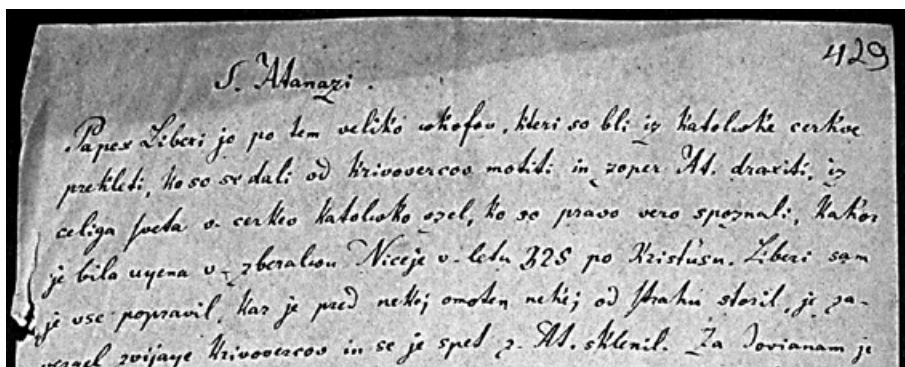 429
S. Atanazi.
Papež Liberi je po tem veliko škofov, kteri so bli iz katolške cerkve
prekleti, ko so se dali od krivovercov motiti in zoper At. dražiti, iz
celiga sveta v cerkev katolško vzel, ko so pravo vero spoznali, kakor
je bila učena v zberalšu Niceje v letu 325 po Kristusu. Liberi sam
je vse popravil, kar je pred nekej omoten nekej od strahu storil, je za-
vergel zvijače krivovercov in se je spet z At. sklenil. Za Jovianam je